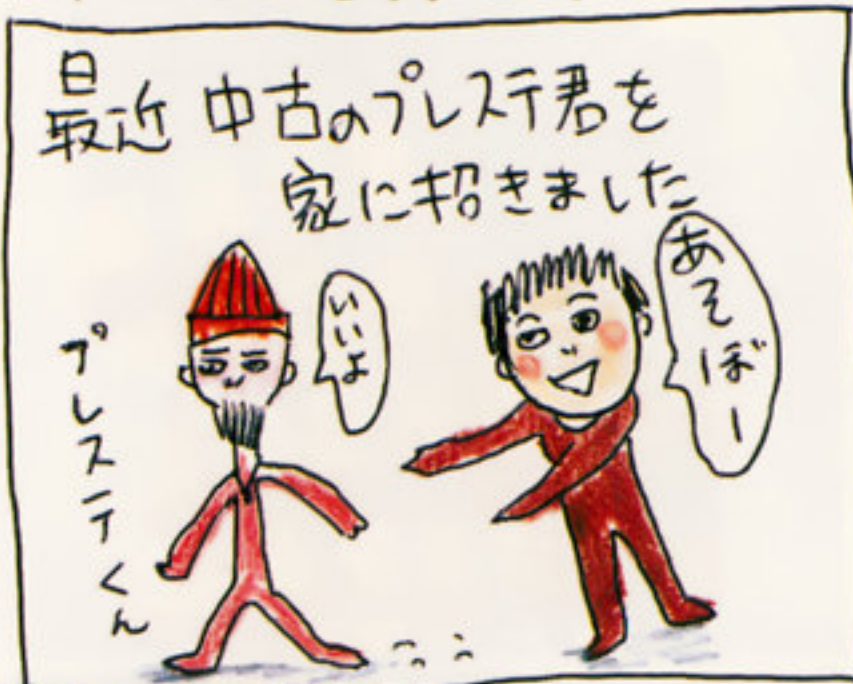 最近 中古のプレステ君を
家に招きました
あそぼー
いいよ
プレステくん